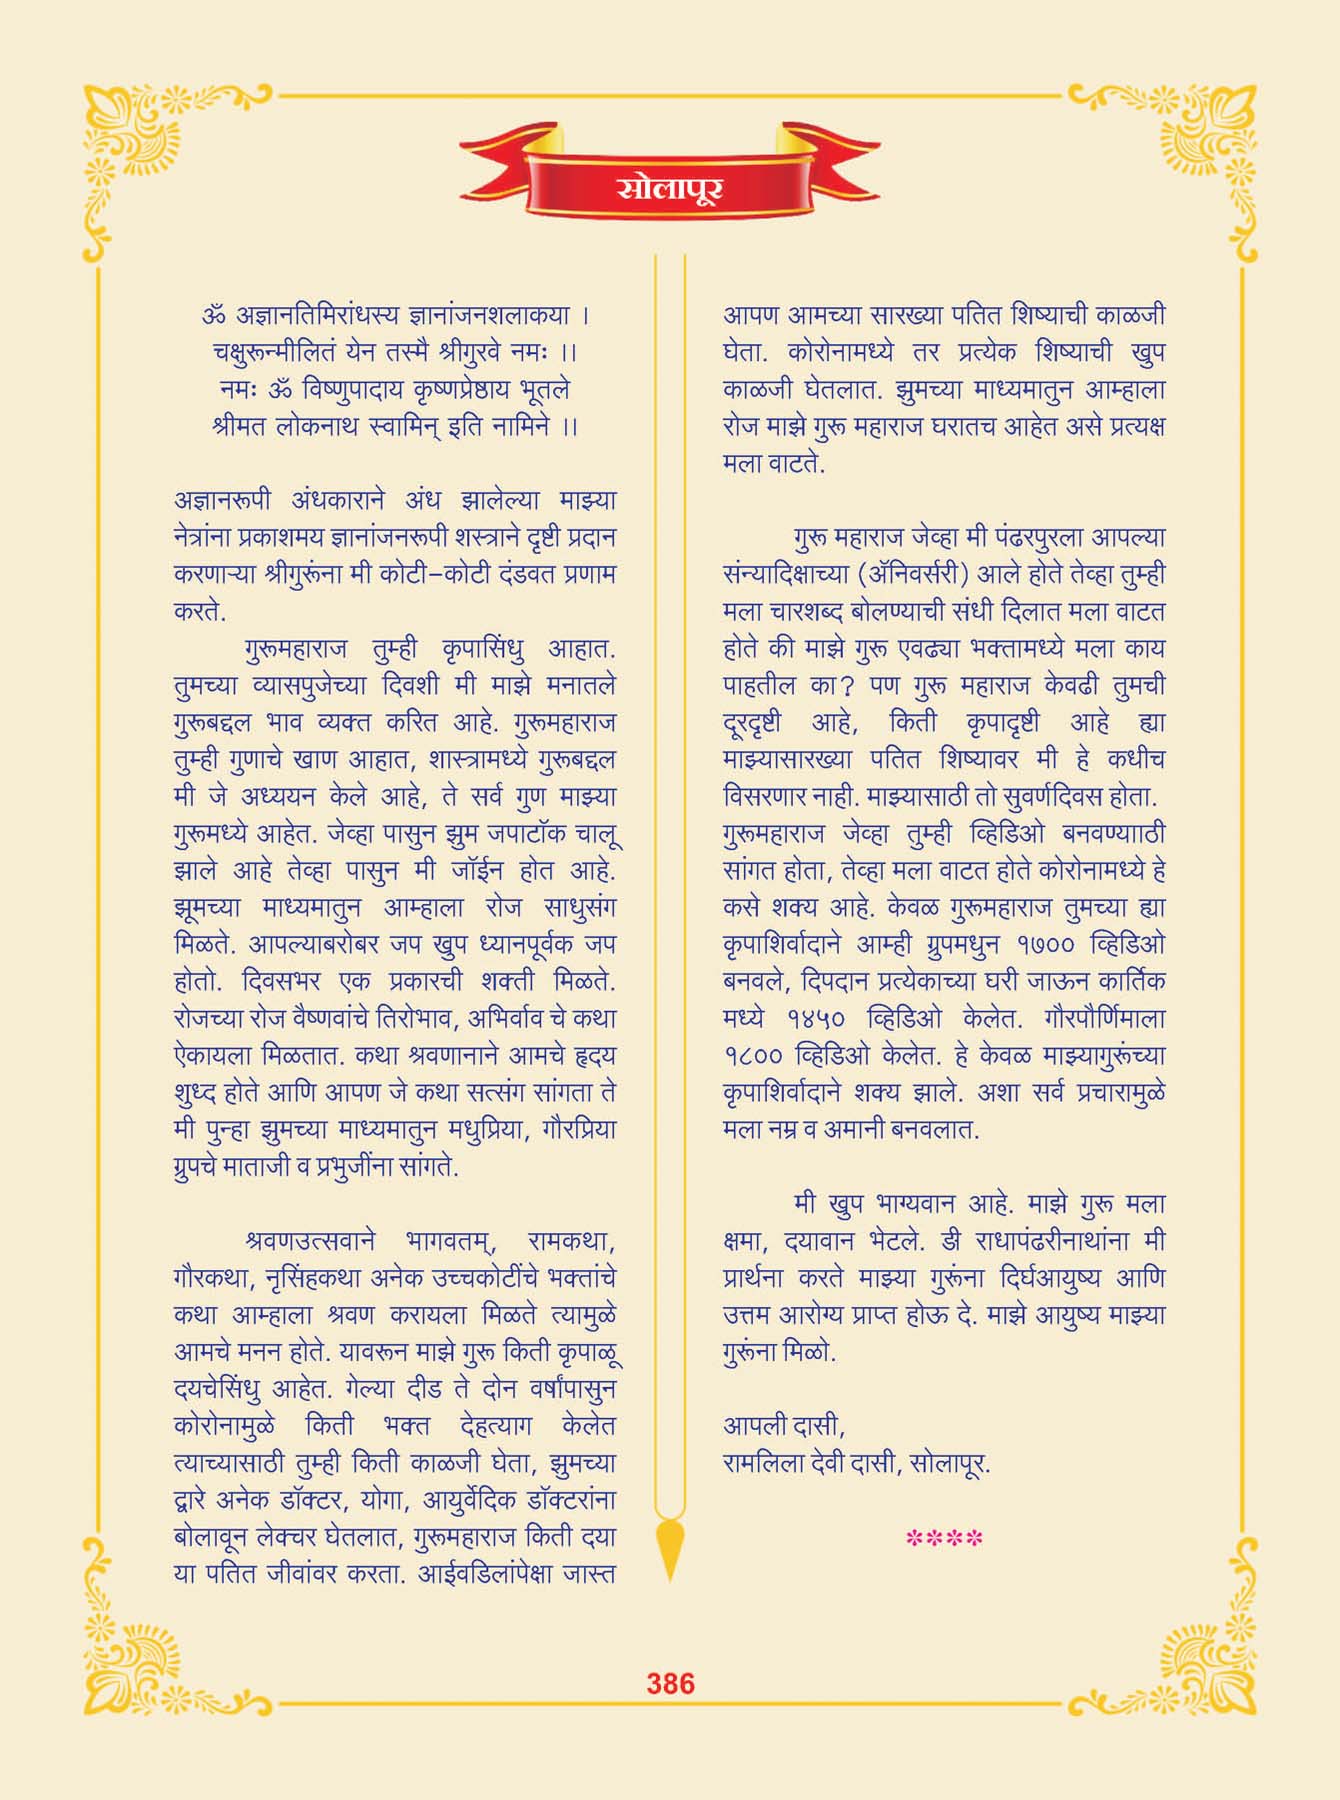 सोलापूर
ॐ अज्ञानतिमिरांधस्य ज्ञानांजनशलाकया ।
चक्षुरून्मीलितं येन तस्मै श्रीगुरवे नमः ।।
नमः ॐ विष्णुपादाय कृष्णप्रेष्ठाय भूतले
श्रीमत लोकनाथ स्वामिन् इति नामिने ।।
अज्ञानरूपी अंधकाराने अंध झालेल्या माझ्या
नेत्रांना प्रकाशमय ज्ञानांजनरूपी शस्त्राने दृष्टी प्रदान
करणाऱ्या श्रीगुरूंना मी कोटी-कोटी दंडवत प्रणाम
करते.
गुरूमहाराज तुम्ही कृपासिंधु आहात.
तुमच्या व्यासपुजेच्या दिवशी मी माझे मनातले
गुरूबद्दल भाव व्यक्त करित आहे. गुरूमहाराज
तुम्ही गुणाचे खाण आहात, शास्त्रामध्ये गुरूबद्दल
मी जे अध्ययन केले आहे, ते सर्व गुण माझ्या
गुरूमध्ये आहेत. जेव्हा पासुन झुम जपाटॉक चालू
झाले आहे तेव्हा पासुन मी जॉईन होत आहे.
झूमच्या माध्यमातुन आम्हाला रोज साधुसंग
मिळते. आपल्याबरोबर जप खुप ध्यानपूर्वक जप
होतो. दिवसभर एक प्रकारची शक्ती मिळते.
रोजच्या रोज वैष्णवांचे तिरोभाव, अभिर्वाव चे कथा
ऐकायला मिळतात. कथा श्रवणानाने आमचे हृदय
शुध्द होते आणि आपण जे कथा सत्संग सांगता ते
मी पुन्हा झुमच्या माध्यमातुन मधुप्रिया, गौरप्रिया
ग्रुपचे माताजी व प्रभुजींना सांगते.
श्रवणउत्सवाने भागवतम्, रामकथा,
गौरकथा, नृसिंहकथा अनेक उच्चकोटींचे भक्तांचे
कथा आम्हाला श्रवण करायला मिळते त्यामुळे
आमचे मनन होते. यावरून माझे गुरू किती कृपाळू
दयचेसिंधु आहेत. गेल्या दीड ते दोन वर्षांपासुन
कोरोनामुळे किती भक्त देहत्याग केलेत
त्याच्यासाठी तुम्ही किती काळजी घेता, झुमच्या
द्वारे अनेक डॉक्टर, योगा, आयुर्वेदिक डॉक्टरांना
बोलावून लेक्चर घेतलात, गुरूमहाराज किती दया
या पतित जीवांवर करता. आईवडिलांपेक्षा जास्त
आपण आमच्या सारख्या पतित शिष्याची काळजी
घेता. कोरोनामध्ये तर प्रत्येक शिष्याची खुप
काळजी घेतलात. झुमच्या माध्यमातुन आम्हाला
रोज माझे गुरू महाराज घरातच आहेत असे प्रत्यक्ष
मला वाटते.
गुरू महाराज जेव्हा मी पंढरपुरला आपल्या
संन्यादिक्षाच्या (ॲनिवर्सरी) आले होते तेव्हा तुम्ही
मला चारशब्द बोलण्याची संधी दिलात मला वाटत
होते की माझे गुरू एवढ्या भक्तामध्ये मला काय
पाहतील का? पण गुरू महाराज केवढी तुमची
दूरदृष्टी आहे, किती कृपादृष्टी आहे ह्या
माझ्यासारख्या पतित शिष्यावर मी हे कधीच
विसरणार नाही. माझ्यासाठी तो सुवर्णदिवस होता.
गुरूमहाराज जेव्हा तुम्ही व्हिडिओ बनवण्यााठी
सांगत होता, तेव्हा मला वाटत होते कोरोनामध्ये हे
कसे शक्य आहे. केवळ गुरूमहाराज तुमच्या ह्या
कृपाशिर्वादाने आम्ही ग्रुपमधुन १७०० व्हिडिओ
बनवले, दिपदान प्रत्येकाच्या घरी जाऊन कार्तिक
मध्ये १४५० व्हिडिओ केलेत. गौरपौर्णिमाला
१८०० व्हिडिओ केलेत. हे केवळ माझ्यागुरूंच्या
कृपाशिर्वादाने शक्य झाले. अशा सर्व प्रचारामुळे
मला नम्र व अमानी बनवलात.
मी खुप भाग्यवान आहे. माझे गुरू मला
क्षमा, दयावान भेटले. डी राधापंढरीनाथांना मी
प्रार्थना करते माझ्या गुरूंना दिर्घआयुष्य आणि
उत्तम आरोग्य प्राप्त होऊ दे. माझे आयुष्य माझ्या
गुरूंना मिळो.
आपली दासी,
रामलिला देवी दासी, सोलापूर.
****
386